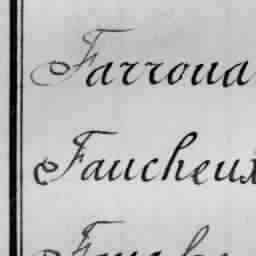 Farroua
Faucheux